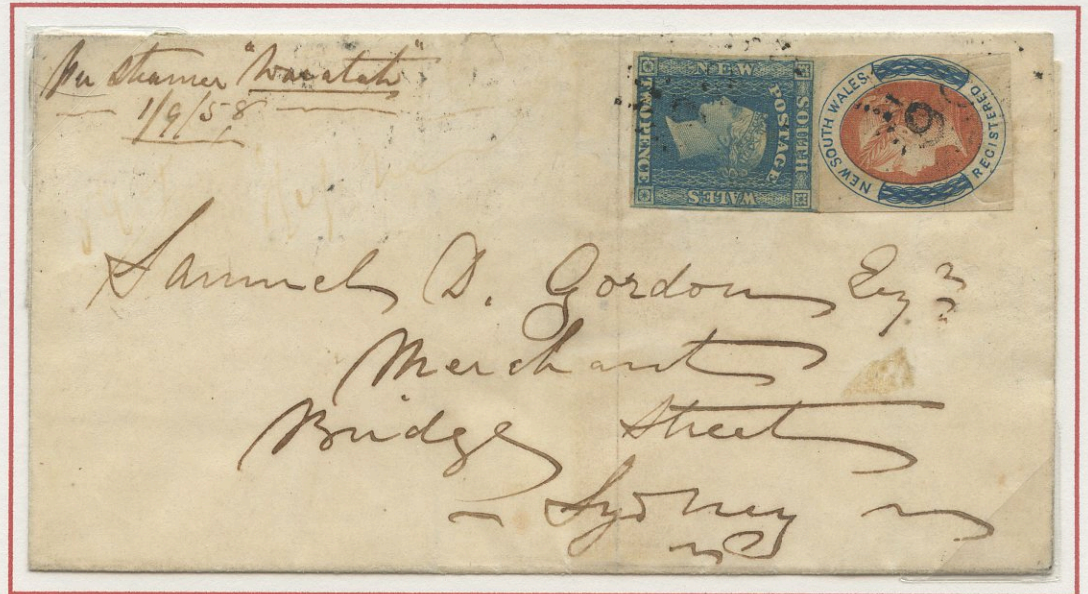 Per Steamer "Waratah"
1/9/58
NEW SOUTH WALES POSTAGE TWO PENCE
NEW SOUTH WALES REGISTERED
Samuel D. Gordon Esqr
Merchant
Bridge Street
Sydney